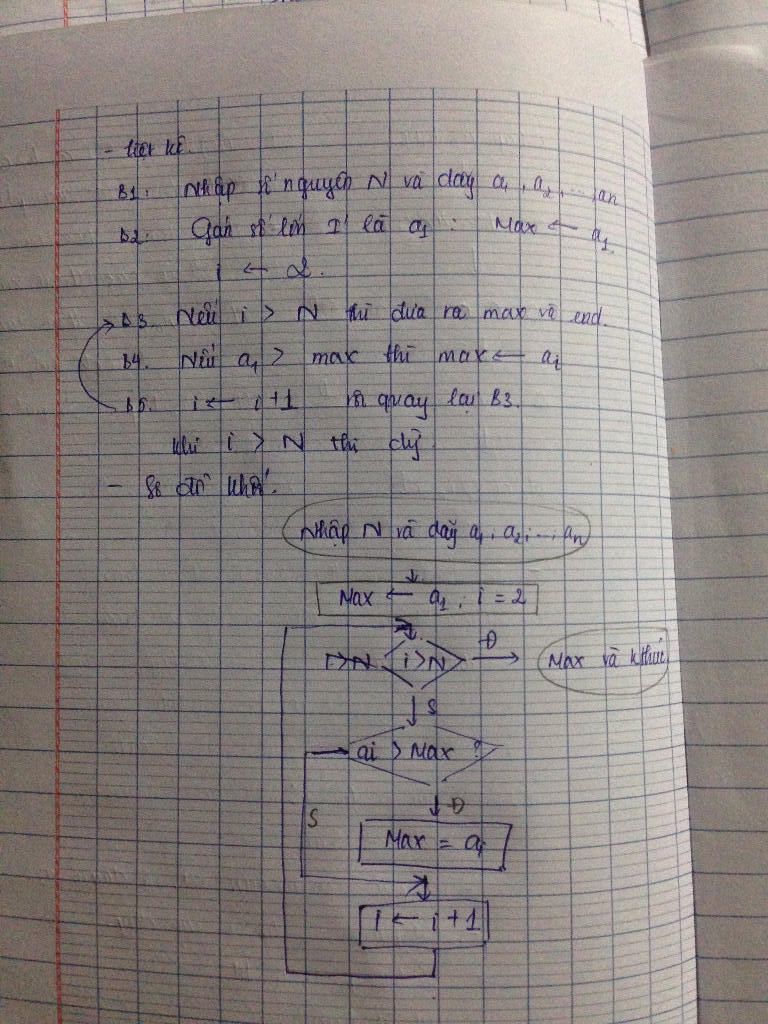 - Liệt kê.
B1: Nhập số nguyên N và dãy a1, a2, ..., an
B2: Gán số lớn I là a1: Max ← a1.
i ← 2.
B3. Nếu i > N thì đưa ra max và end.
B4. Nếu a1 > max thì max ← ai
B5. i ← i+1 rồi quay lại B3.
khi i > N thì
- Sơ đồ khối.
Nhập N và dãy a1, a2, ..., an
Max ← a1, i = 2
i>N i>N Đ Max và k thúc
S
ai > Max ?
Đ
S
Max = ai
i ← i + 1